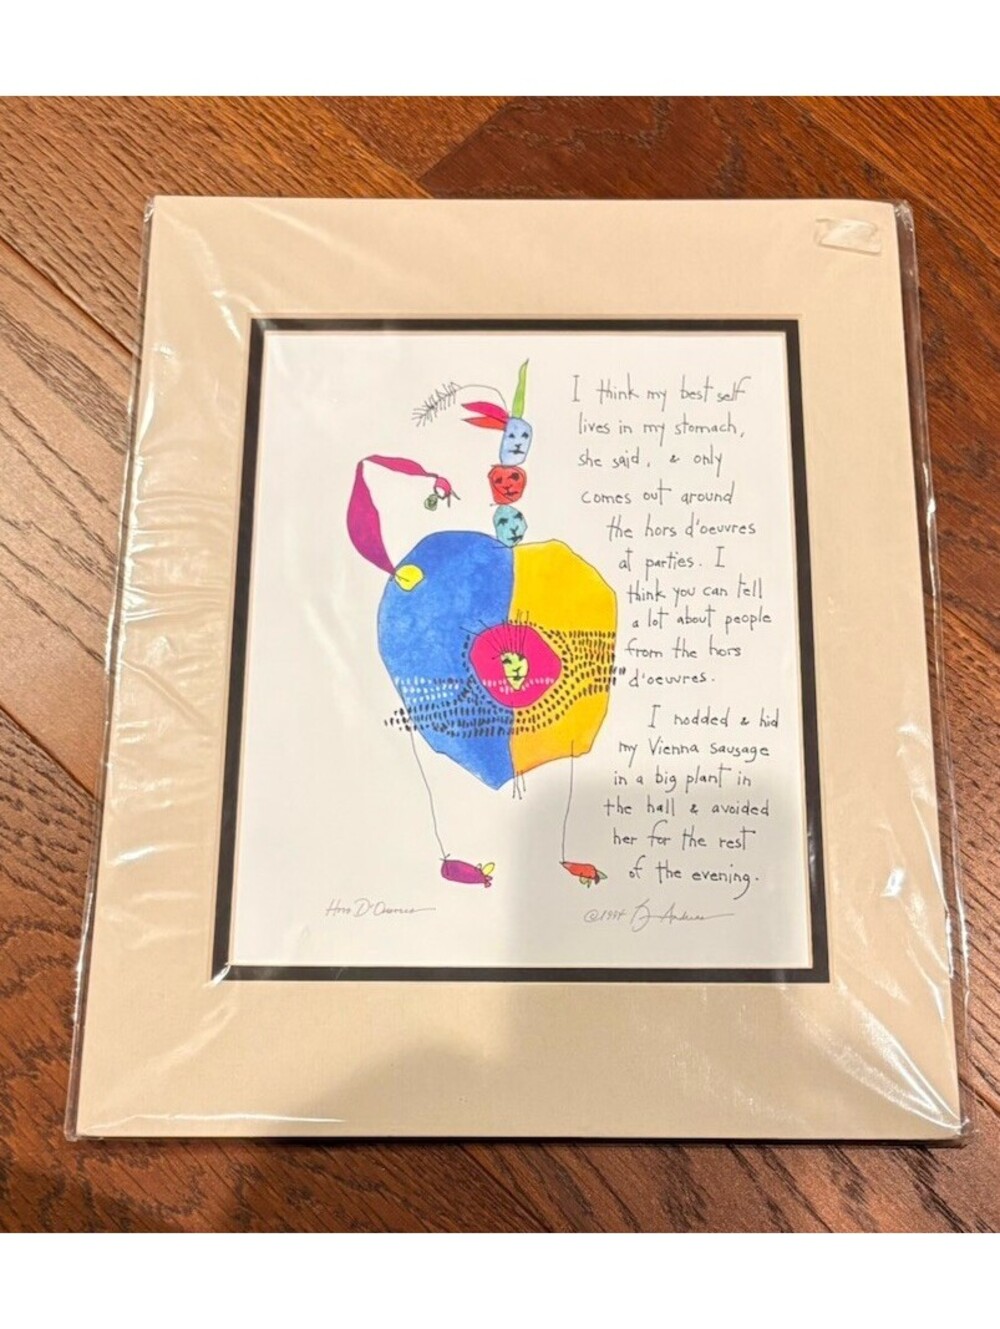 I think my best self
lives in my stomach,
she said, & only
comes out around
the hors d'oeuvres
at parties. I
think you can tell
a lot about people
from the hors
d'oeuvres.
I nodded & hid
my Vienna sausage
in a big plant in
the hall & avoided
her for the rest
of the evening.
Hors D'Oeuvres
©1994 B. Andreas